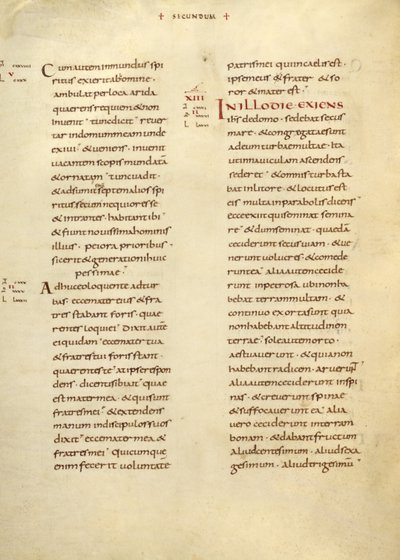 + SECUNDUM +
Cum autem inmundus spi
ritus exierit ab homine ·
ambulat per loca arida
quaerens requiem & non
invenit · tunc dicit · rever
tar in domum meam unde
exivi · & veniens · invenit
vacantem scopis mundata
& ornatam · tunc vadit ·
& adsumit septem alios spi
ritus secum nequiores se
& intrantes · habitant ibi
& fiunt novissima hominis
illius · peiora prioribus ·
sic erit & generationi huic
pessimae ·
Adhuc eo loquente ad tur
bas · ecce mater eius & fra
tres stabant foris · quae
rentes loqui ei · Dixit autē
ei quidam · ecce mater tua
& fratres tui foris stant ·
quaerentes te · at ipse respon
dens · dicenti sibi ait · quae
est mater mea · & qui sunt
fratres mei · & extendens
manum in discipulos suos
dixit · ecce mater mea &
fratres mei · quicumque
enim fecerit voluntatē
patris mei qui in caelis est ·
ipse meus & frater & so
ror & mater est ·
XIII
IN ILLO DIE · EXIENS
ihs de domo · sedebat secus
mare · & congregatae sunt
ad eum turbae multae · ita
ut in naviculam ascendens
seder& · & omnis turba sta
bat in litore · & locutus est
eis multa in parabolis dicens ·
ecce exiit qui seminat semina
re · & dum seminat · quaedā
ceciderunt secus viam · & ve
nerunt volucres · & comede
runt ea · alia autem cecide
runt in petrosa · ubi non ha
bebat terram multam · &
continuo exorta sunt quia
non habebant altitudinem
terrae · sole autem orto ·
aestuaverunt · & quia non
habebant radicem · aruerunt
alia autem ceciderunt in spi
nas · & creverunt spinae
& suffocaverunt ea · alia
vero ceciderunt in terram
bonam · & dabant fructum
aliud centesimum · aliud sexa
gesimum · aliud trigesimū